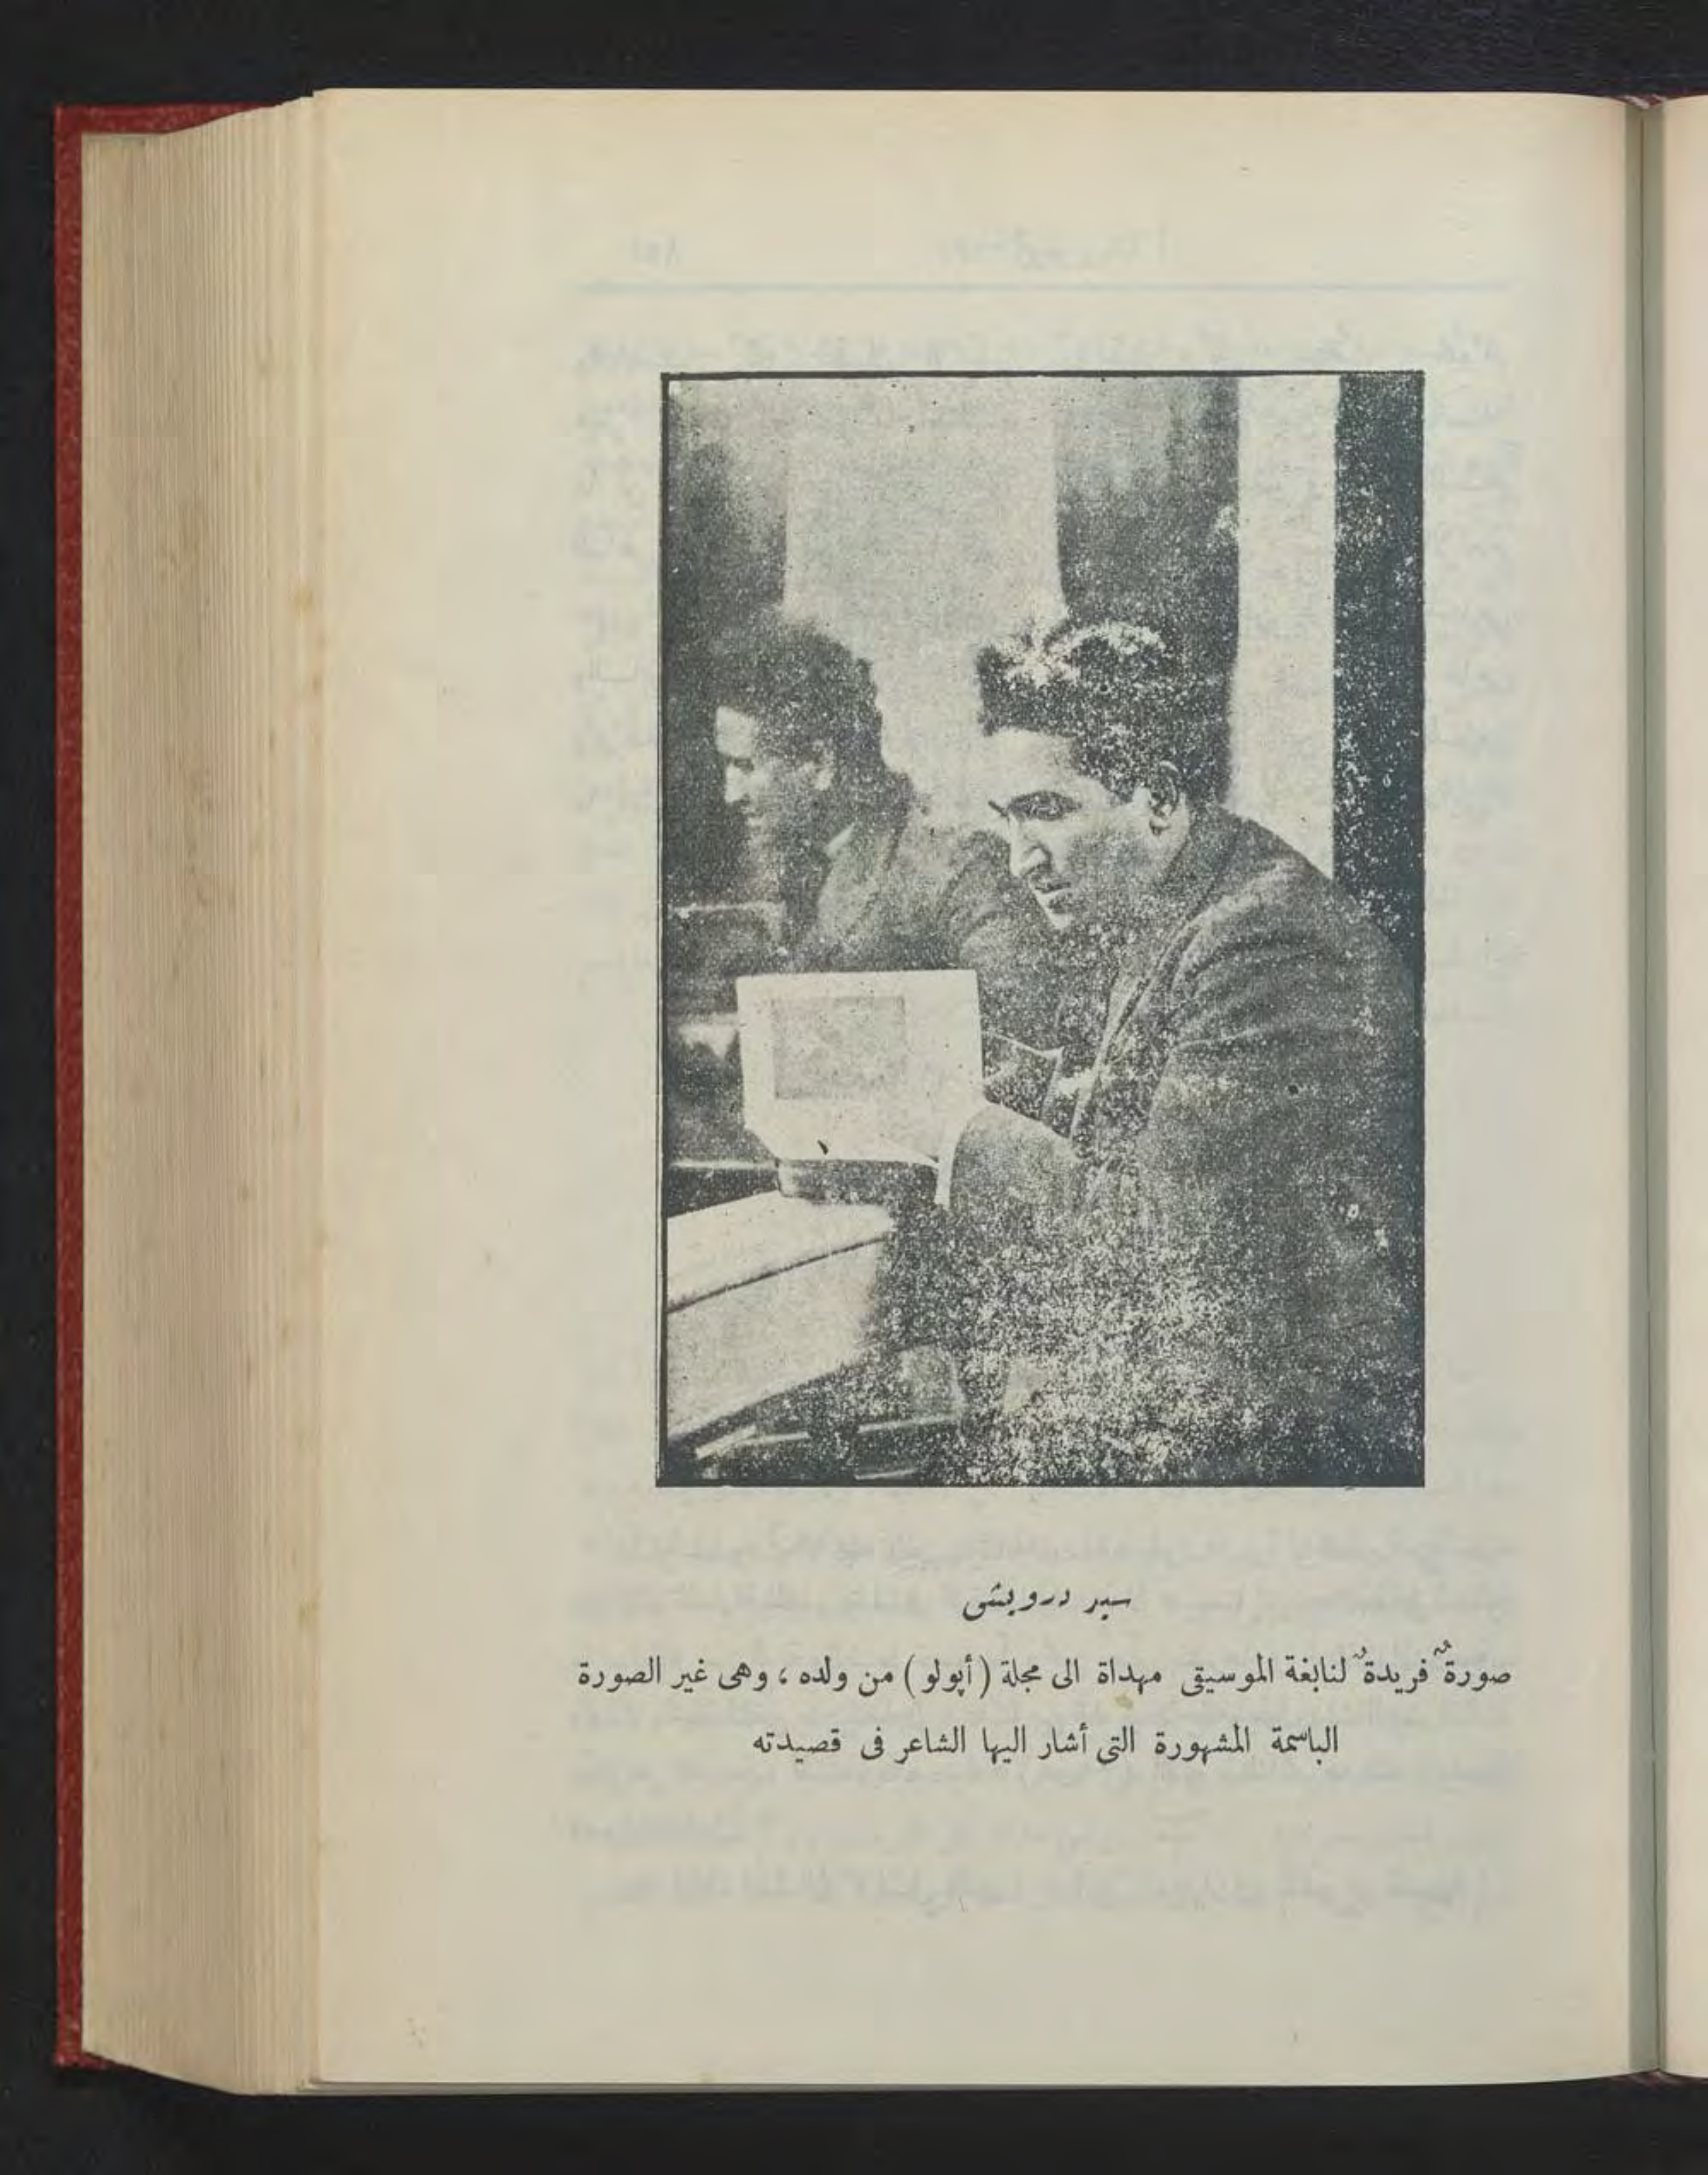 سيد درويش
صورةٌ فريدةٌ لنابغة الموسيقى مهداة الى مجلة (أپولو) من ولده ، وهى غير الصورة
الباسمة المشهورة التى أشار اليها الشاعر فى قصيدته